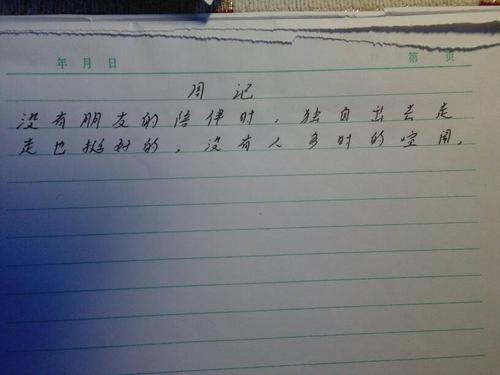 年 月 日 第 页
周记
没有朋友的陪伴时，独自出去走
走也挺好的，没有人多时的喧闹。